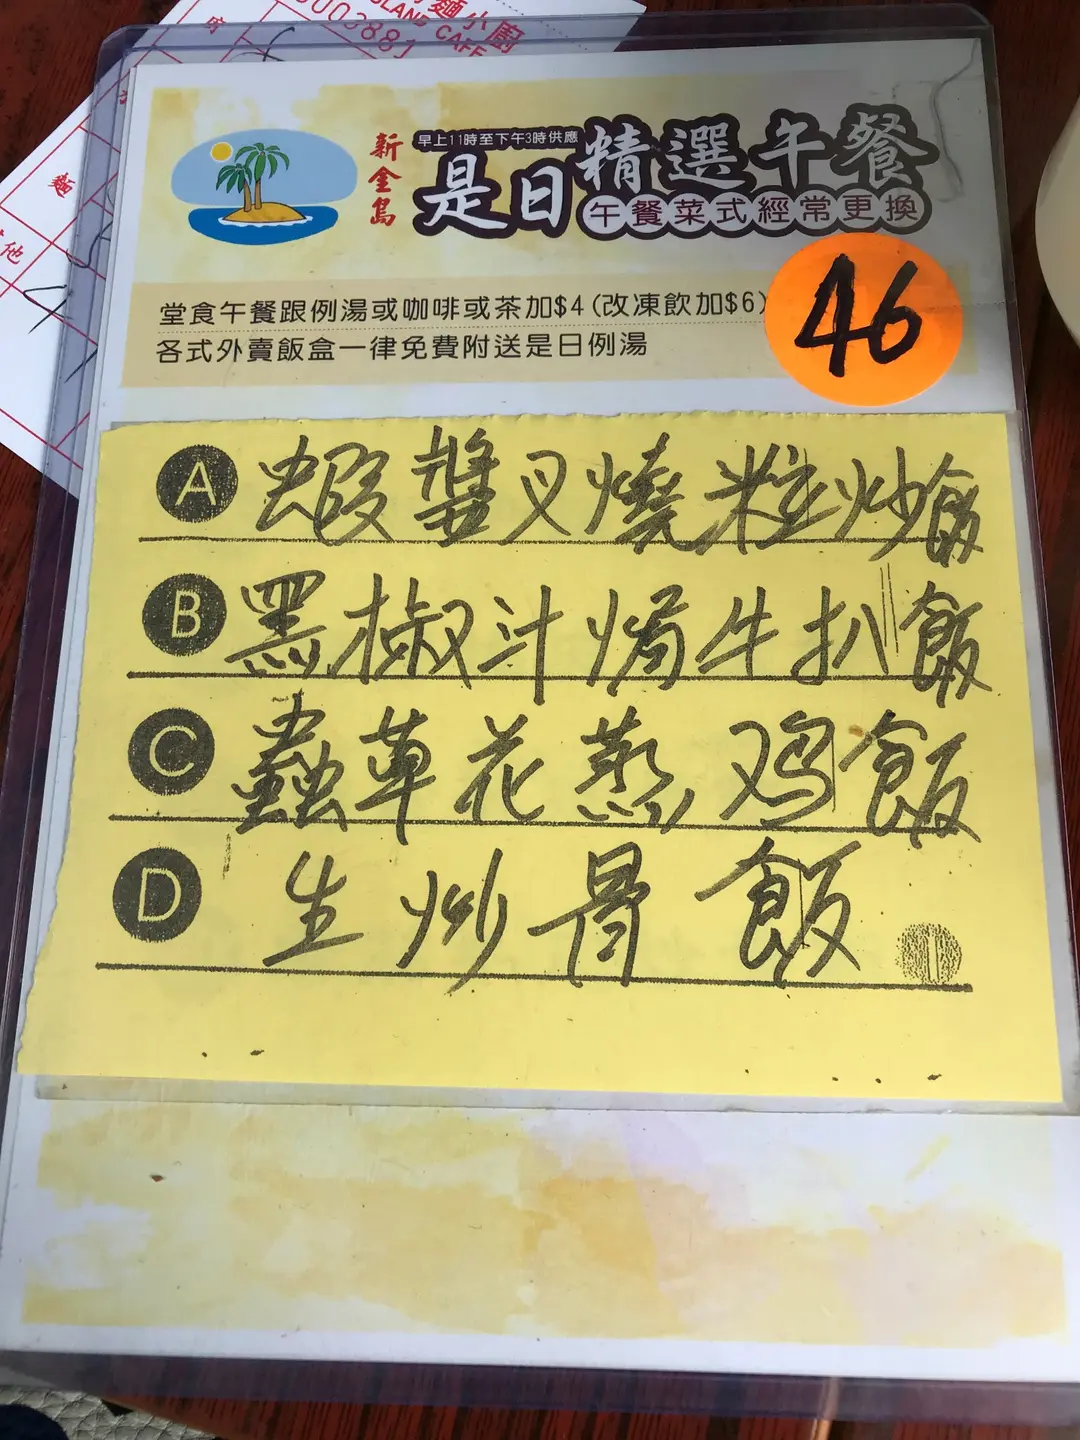 麵小廚
ISLAND CAFE
麵
他
新金島
早上11時至下午3時供應
是日精選午餐
午餐菜式經常更換
堂食午餐跟例湯或咖啡或茶加$4(改凍飲加$6)
各式外賣飯盒一律免費附送是日例湯
46
A 蝦醬叉燒粒炒飯
B 黑椒汁焗牛扒飯
C 蟲草花蒸鸡飯
D 生炒骨飯